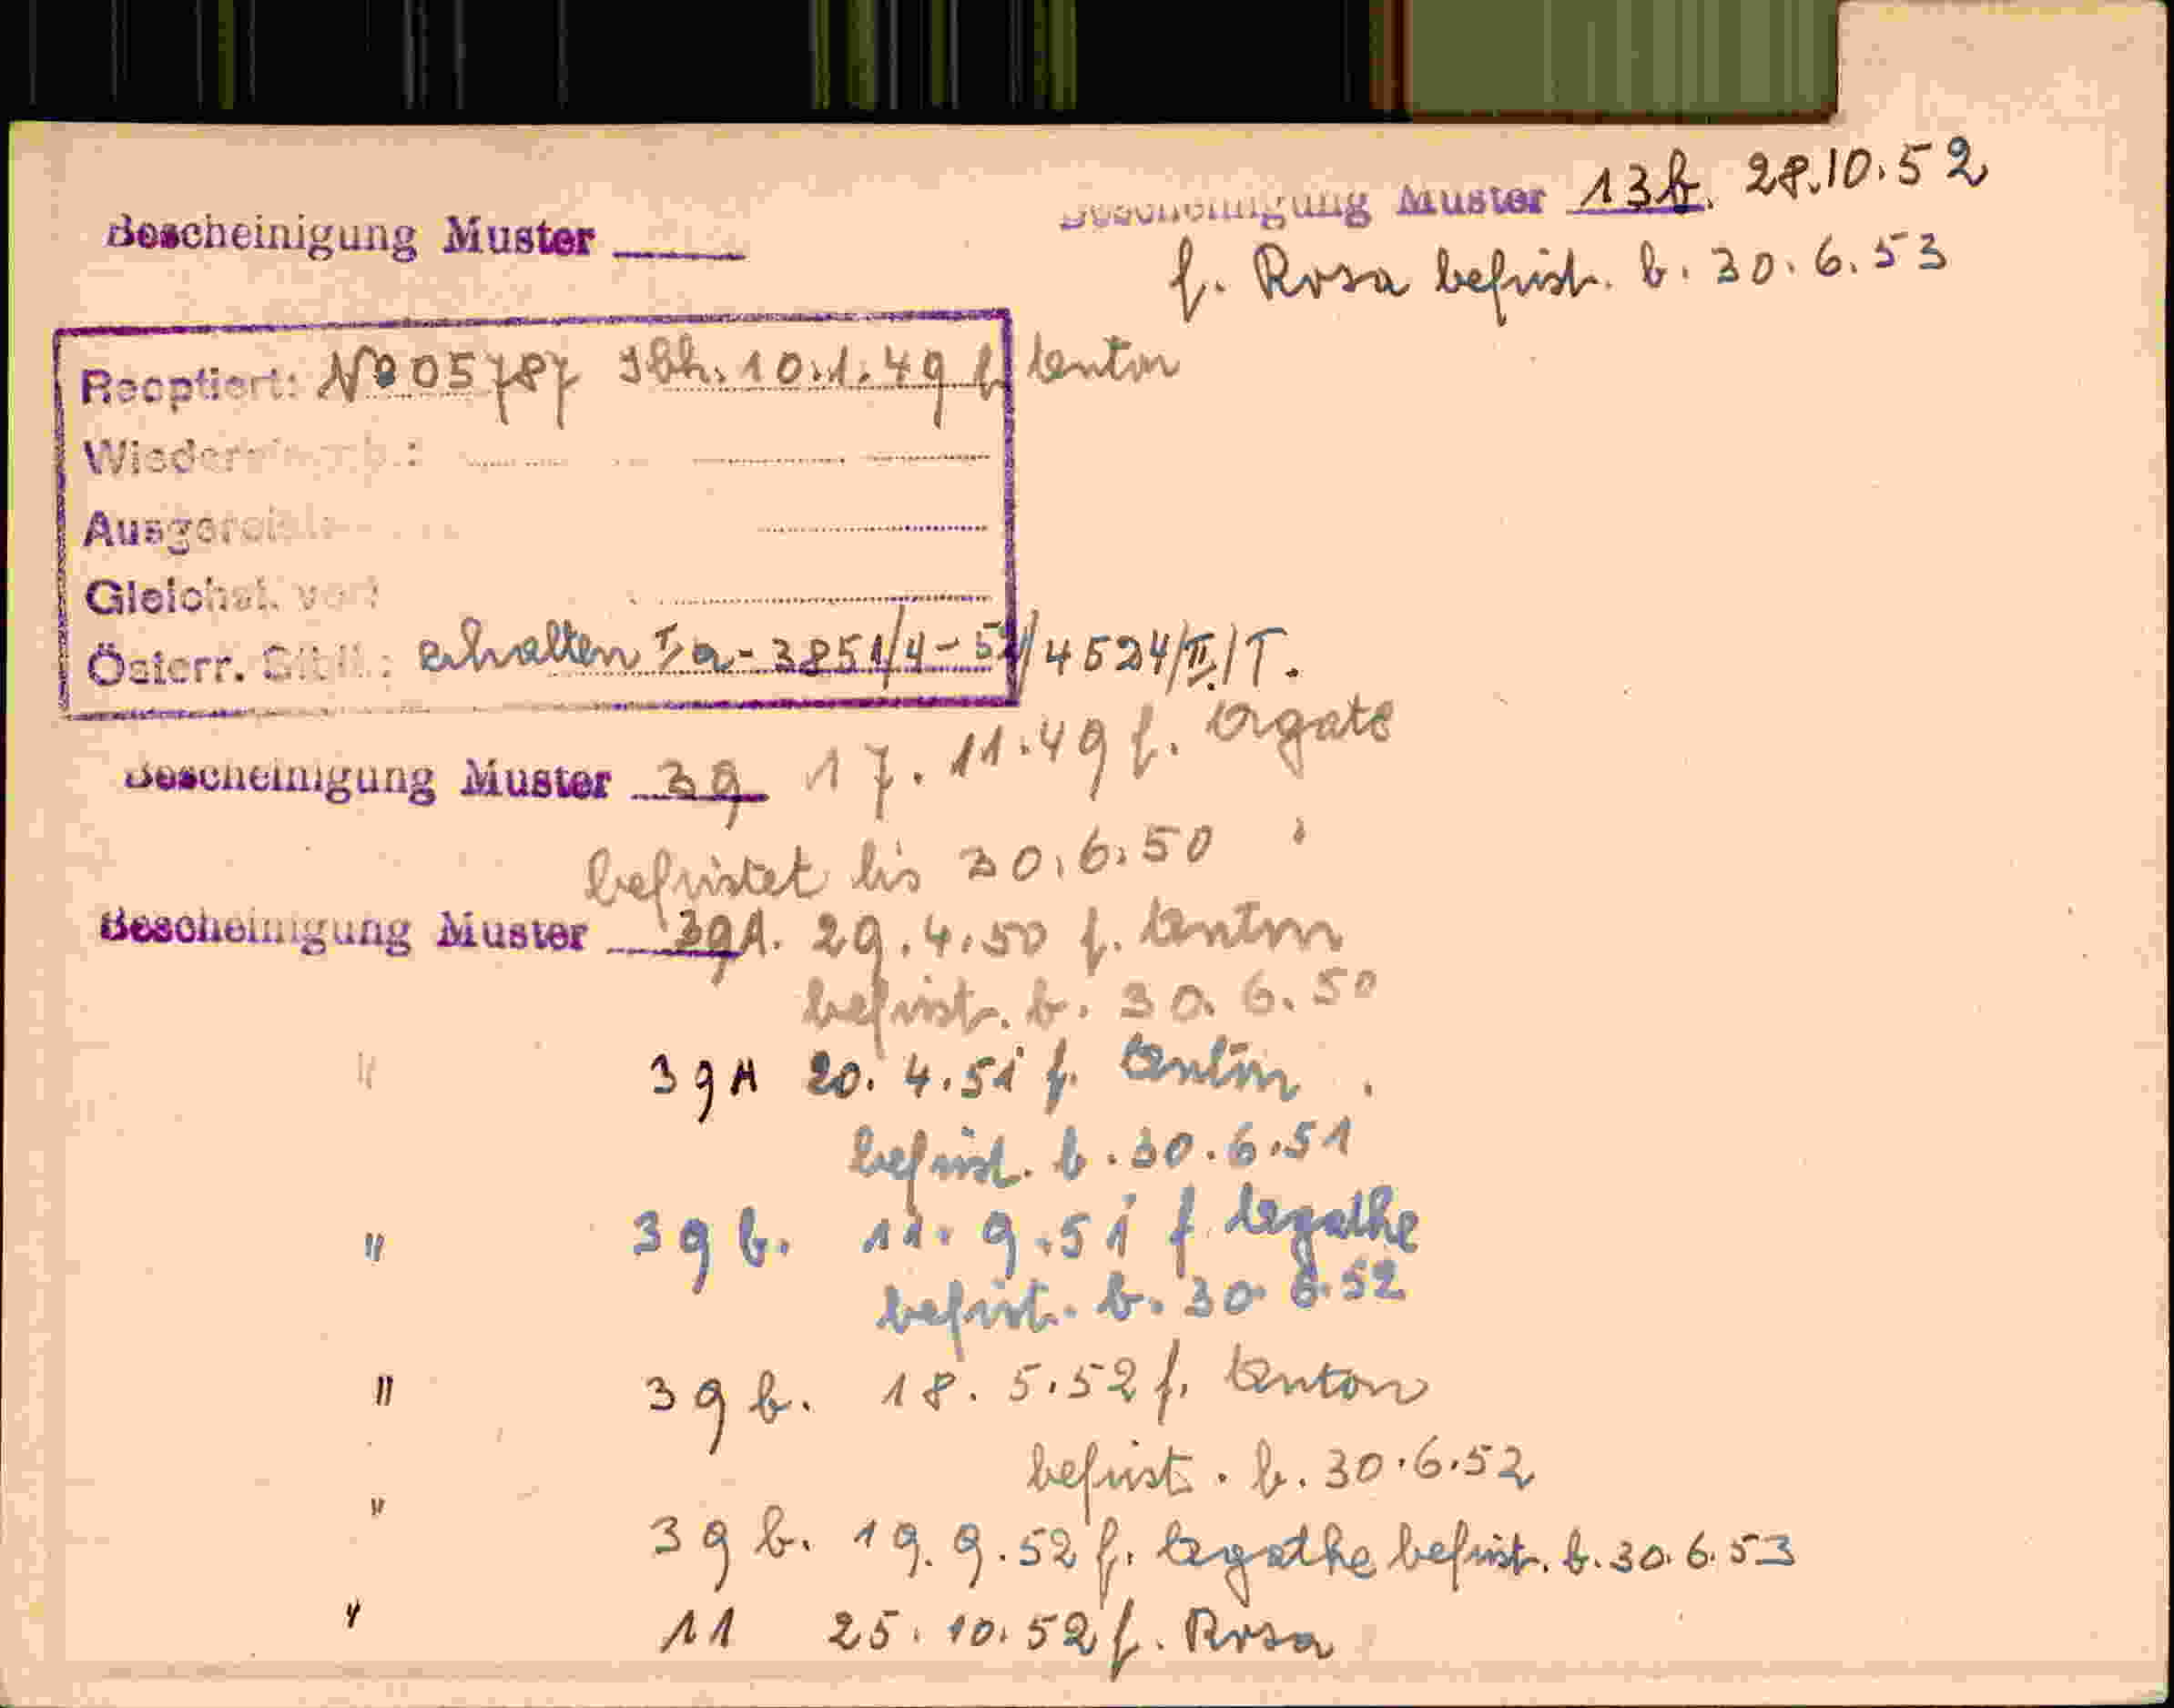 Bescheinigung Muster
Bescheinigung Muster 13b. 28.10.52
f. Rosa befrist. b. 30.6.53
Reoptiert: No 05787 Ibk. 10.1.49 f. Anton
Wiedereinb.:
Ausgereist:
Gleichst. vor:
Österr. Stb.: erhalten Ia-3851/4-52/4524/II/T.
Bescheinigung Muster 39 17.11.49 f. Agate
befristet bis 30.6.50
Bescheinigung Muster 39A. 29.4.50 f. Anton
befrist. b. 30.6.50
" 39A 20.4.51 f. Anton
befrist. b. 30.6.51
" 39b. 11.9.51 f Agathe
befrist. b. 30.6.52
" 39b. 18.5.52 f. Anton
befrist. b. 30.6.52
" 39b. 19.9.52 f. Agathe befrist. b. 30.6.53
" 11 25.10.52 f. Rosa